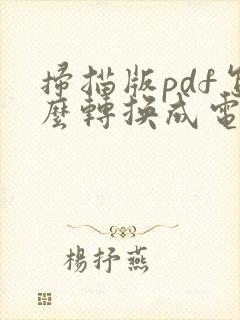 掃描版pdf怎
麼轉換成電
楊抒燕